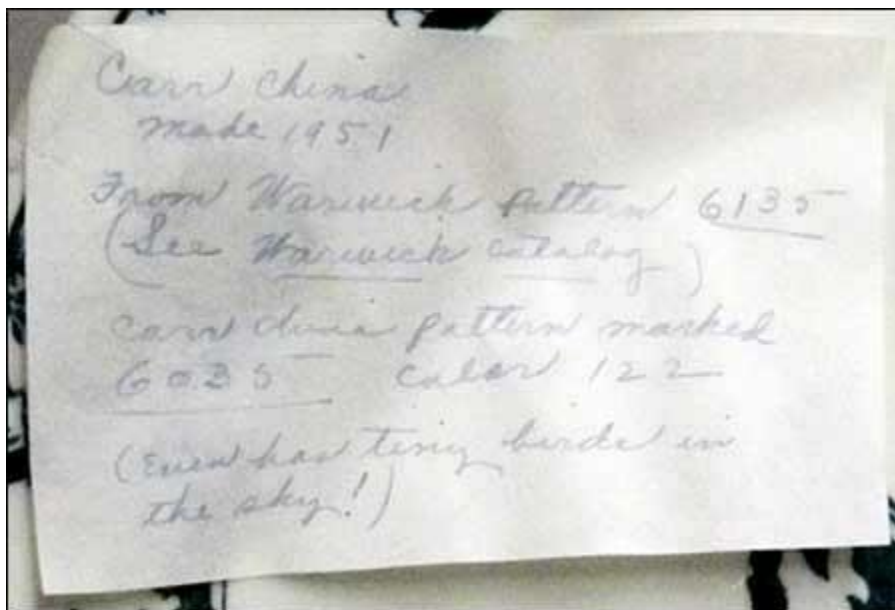 Carr China
made 1951
From Warwick pattern 6135
(See Warwick catalog)
Carr China pattern marked
6035 Color 122
(Even has tiny birds in
the sky!)